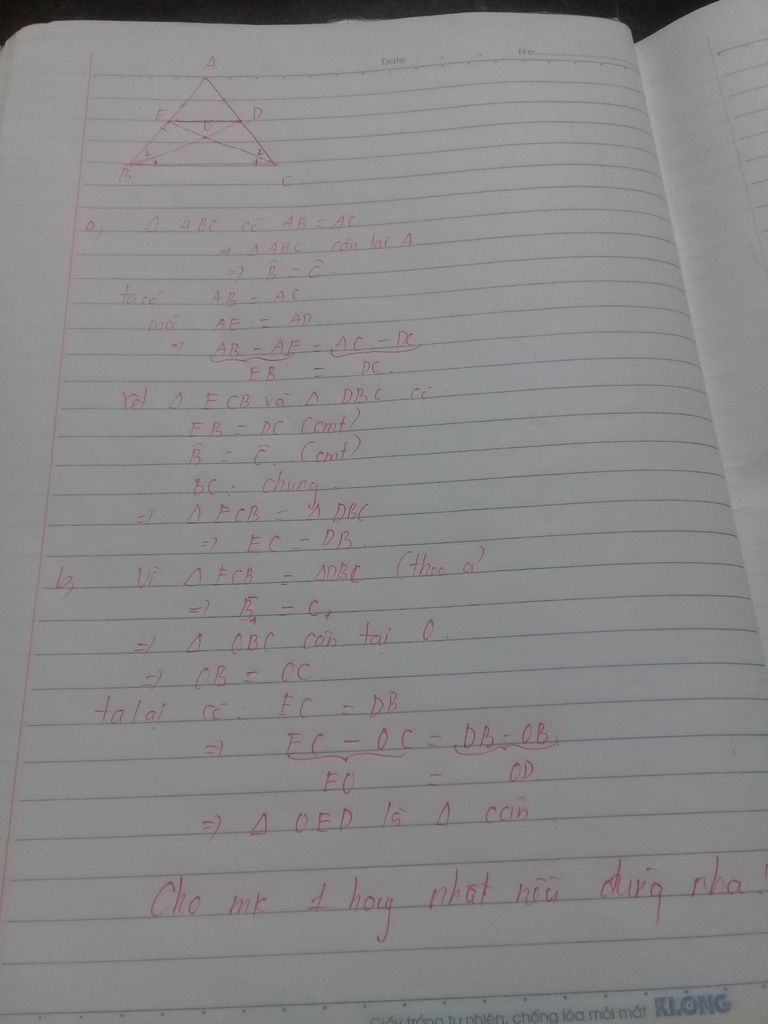 Date No
A
E D
O
2 2
B 1 1 C
a, Δ ABC có AB = AC
=> Δ ABC cân tại A
=> B̂ = Ĉ
ta có: AB = AC
mà AE = AD
=> AB - AE = AC - DC
EB = DC
Xét Δ ECB và Δ DBC có:
EB = DC (cmt)
B̂ = Ĉ (cmt)
BC: chung
=> Δ ECB = Δ DBC
=> EC = DB.
b, Vì Δ ECB = ΔDBC (theo a)
=> B̂₁ = C₁
=> Δ OBC cân tại O.
=> OB = OC
ta lại có: EC = DB
=> EC - OC = DB - OB
EO = OD
=> Δ OED là Δ cân
Cho mk 1 hay nhất nếu đúng nha!
Giấy trắng tự nhiên, chống lóa mỏi mắt KLONG